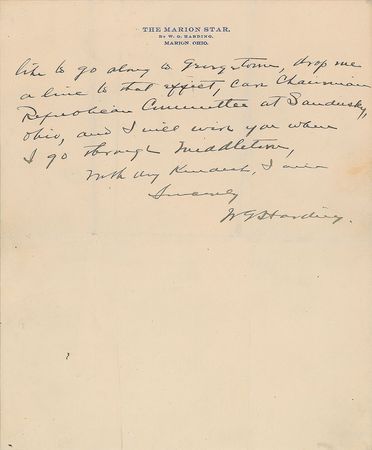 THE MARION STAR.
BY W. G. HARDING.
MARION, OHIO.
like to go along to Georgetown, drop me
a line to that effect, care Chairman
Republican Committee at Sandusky,
Ohio, and I will wire you when
I go through Middletown,
With my Kindest, I am
Sincerely
WGHarding.